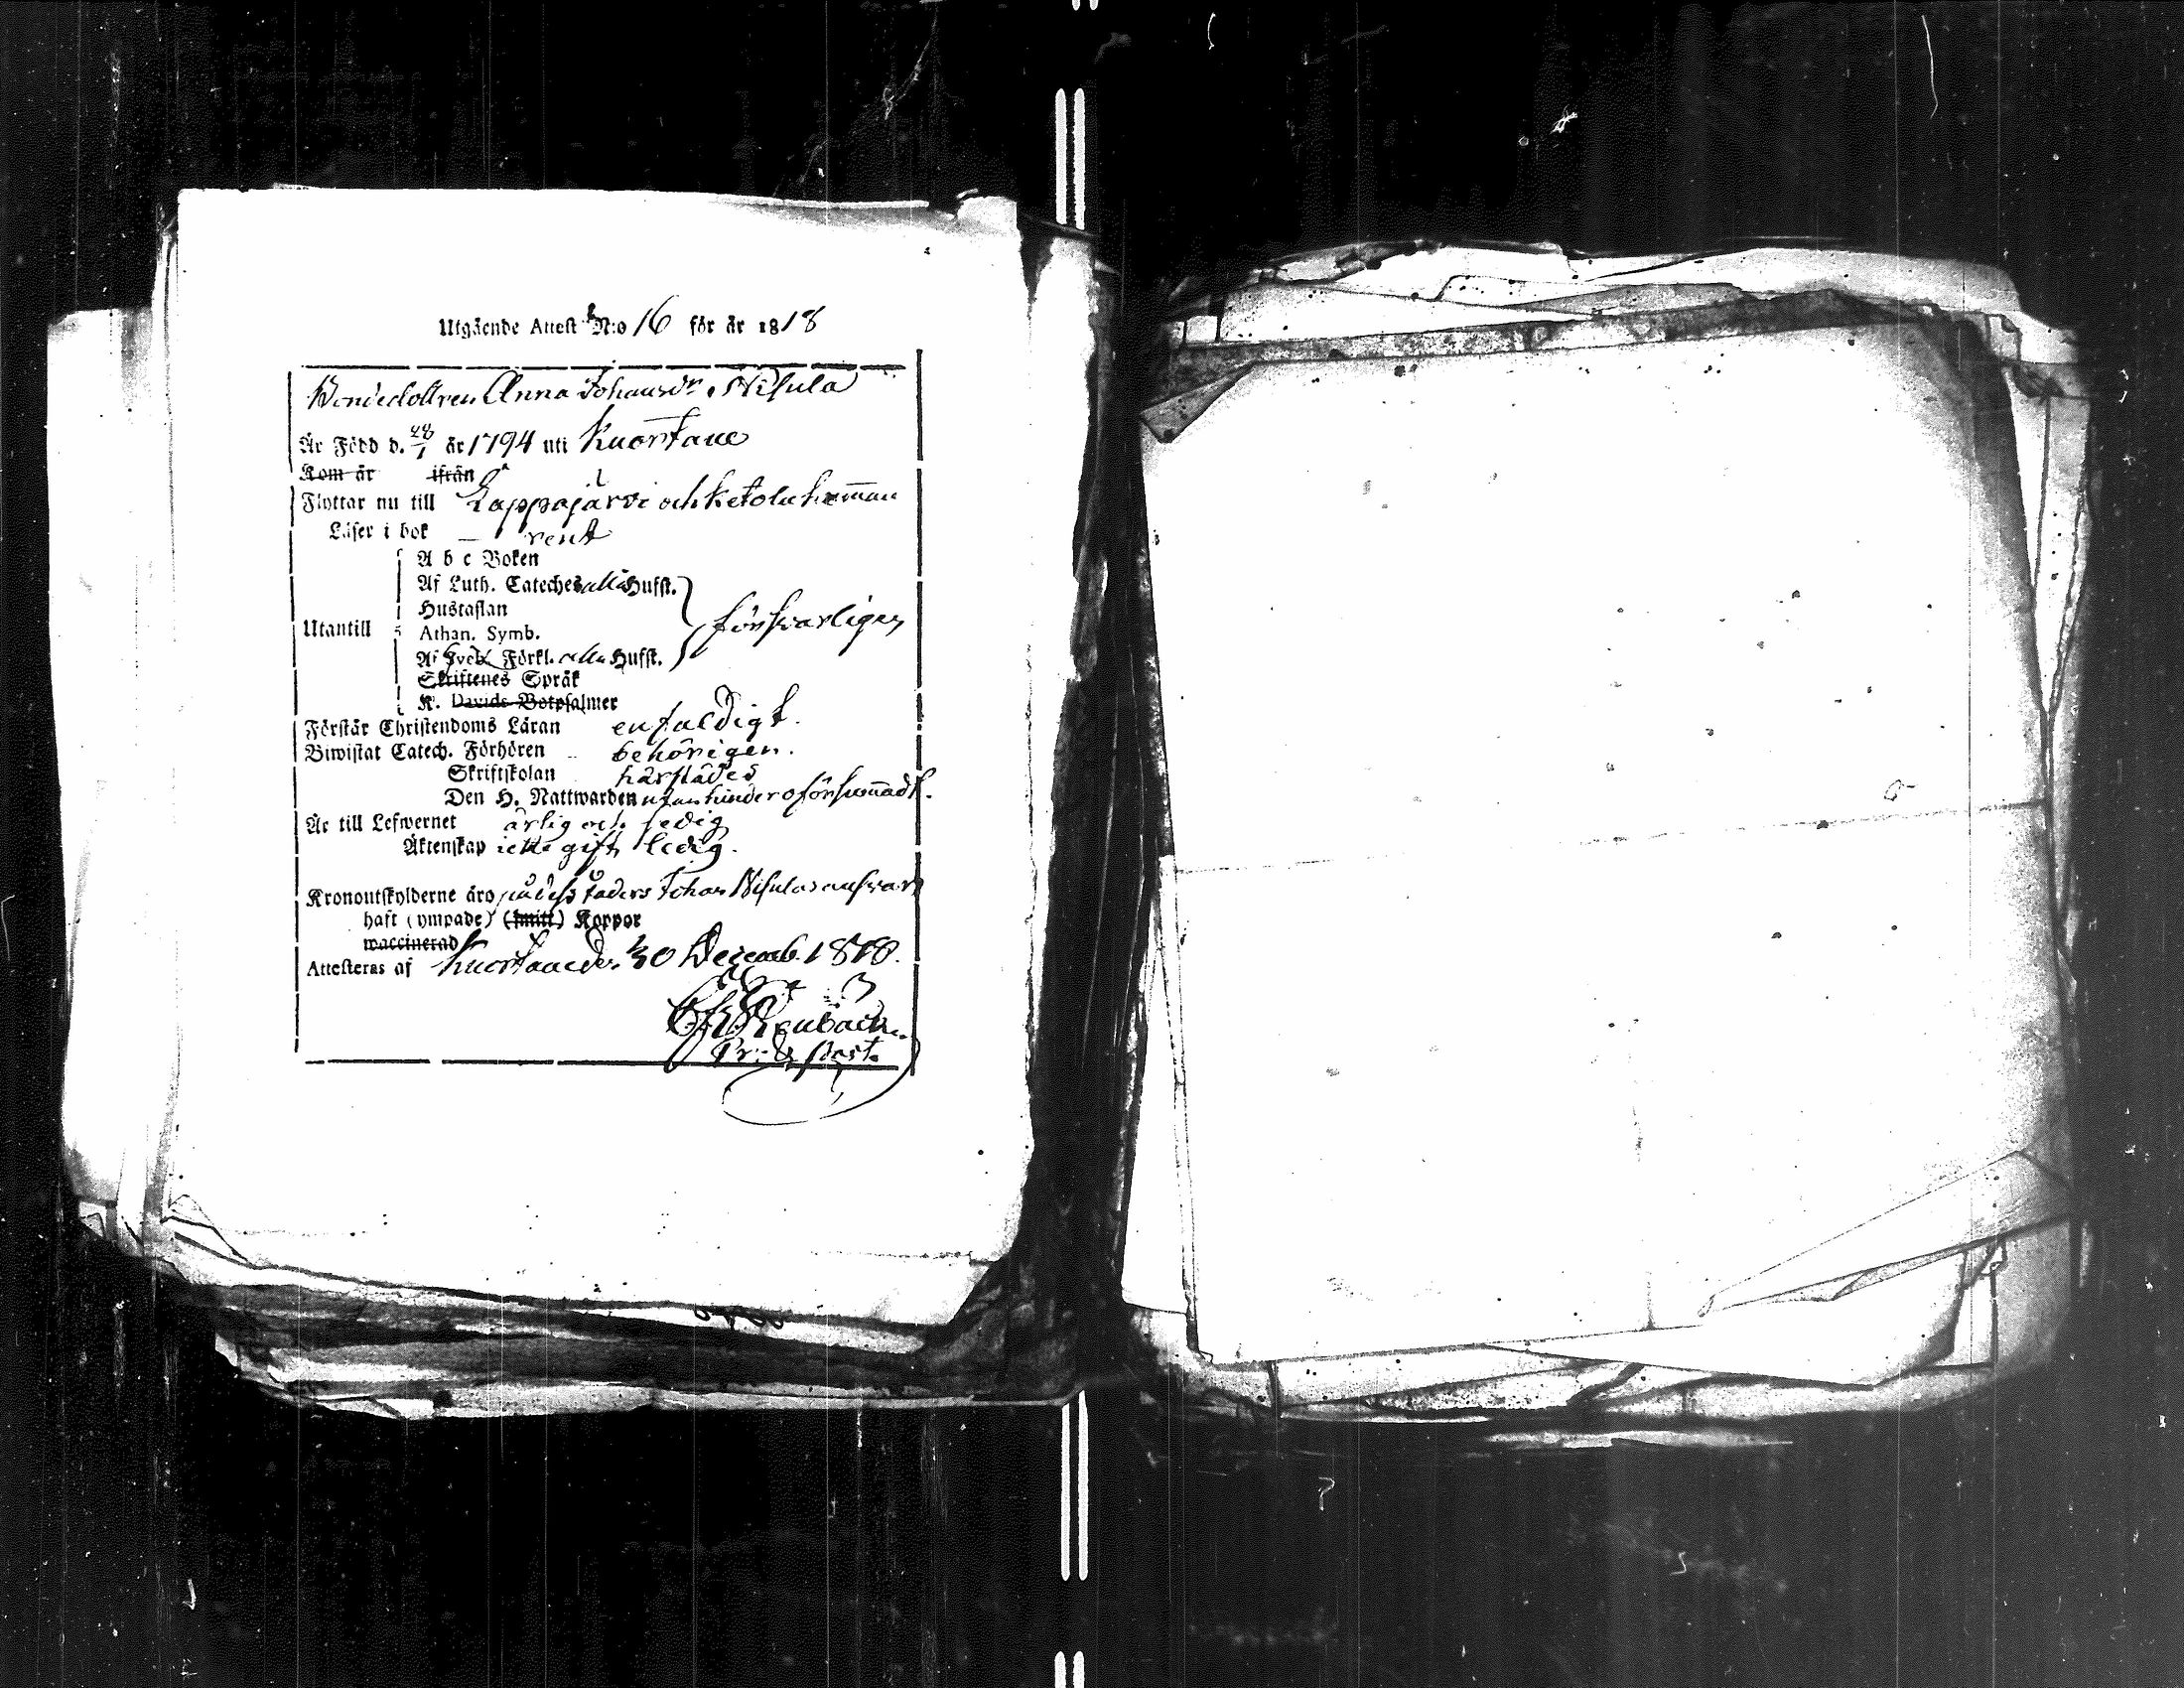 Utgående Attest N:o 16 för år 1818
Bondedottren Anna Johansdr. Nisula
Är Född d. 28/1 år 1794 uti Kuortane
Kom år ifrån
Flyttar nu till Lappajärvi och Ketola hemman
Läser i bok — rent
A b c Boken
Af Luth. Cateches alla Hufst.
Hustaflan
Utantill försvarligen
Athan. Symb.
Af Förkl. alla Hufst.
Skriftenes Språk
K. Davids Botpsalmer
Förstår Christendoms Läran enfaldigt.
Biwistat Catech. Förhören behörigen.
Skriftskolan härstädes
Den H. Nattwarden utan hinder oförsummadt.
Är till Lefwernet ärlig och sedig
Äktenskap icke gift, ledig.
Kronoutskylderne äro på dess faders Johan Nisulas ansvar
haft (ympade) (smitt) Koppor
waccinerad
Attesteras af Kuortane d. 30 Decemb. 1818.